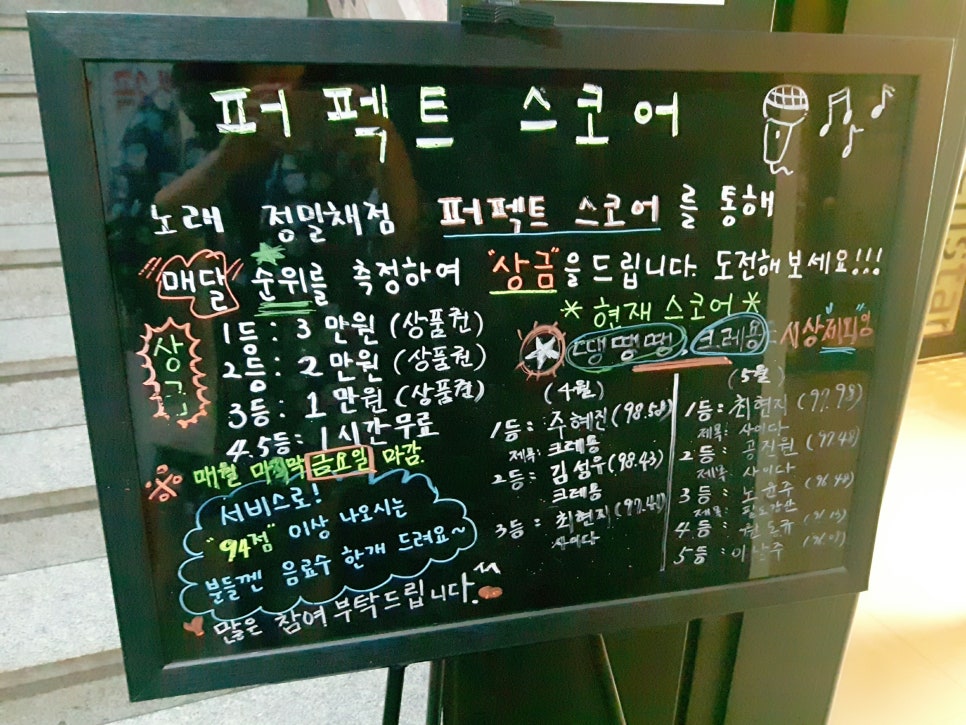 퍼펙트 스코어
노래 정밀채점 퍼펙트 스코어를 통해
매달 순위를 측정하여 "상금"을 드립니다. 도전해보세요!!!
상금
1등: 3만원 (상품권)
2등: 2만원 (상품권)
3등: 1만원 (상품권)
4.5등: 1시간 무료
※ 매월 마지막 금요일 마감.
서비스로!
"94점" 이상 나오시는
분들껜 음료수 한개 드려요~
많은 참여 부탁드립니다.
*현재 스코어*
땡땡땡, 크레용 시상제외임
(4월)
1등: 주혜진 (98.58)
제목: 크레용
2등: 김성우 (98.43)
크레용
3등: 최현지
사이다
(5월)
1등: 최현지 (97.98)
제목: 사이다
2등: 공진원 (97.48)
제목: 사이다
3등: 노윤주
제목:
4등:
5등: